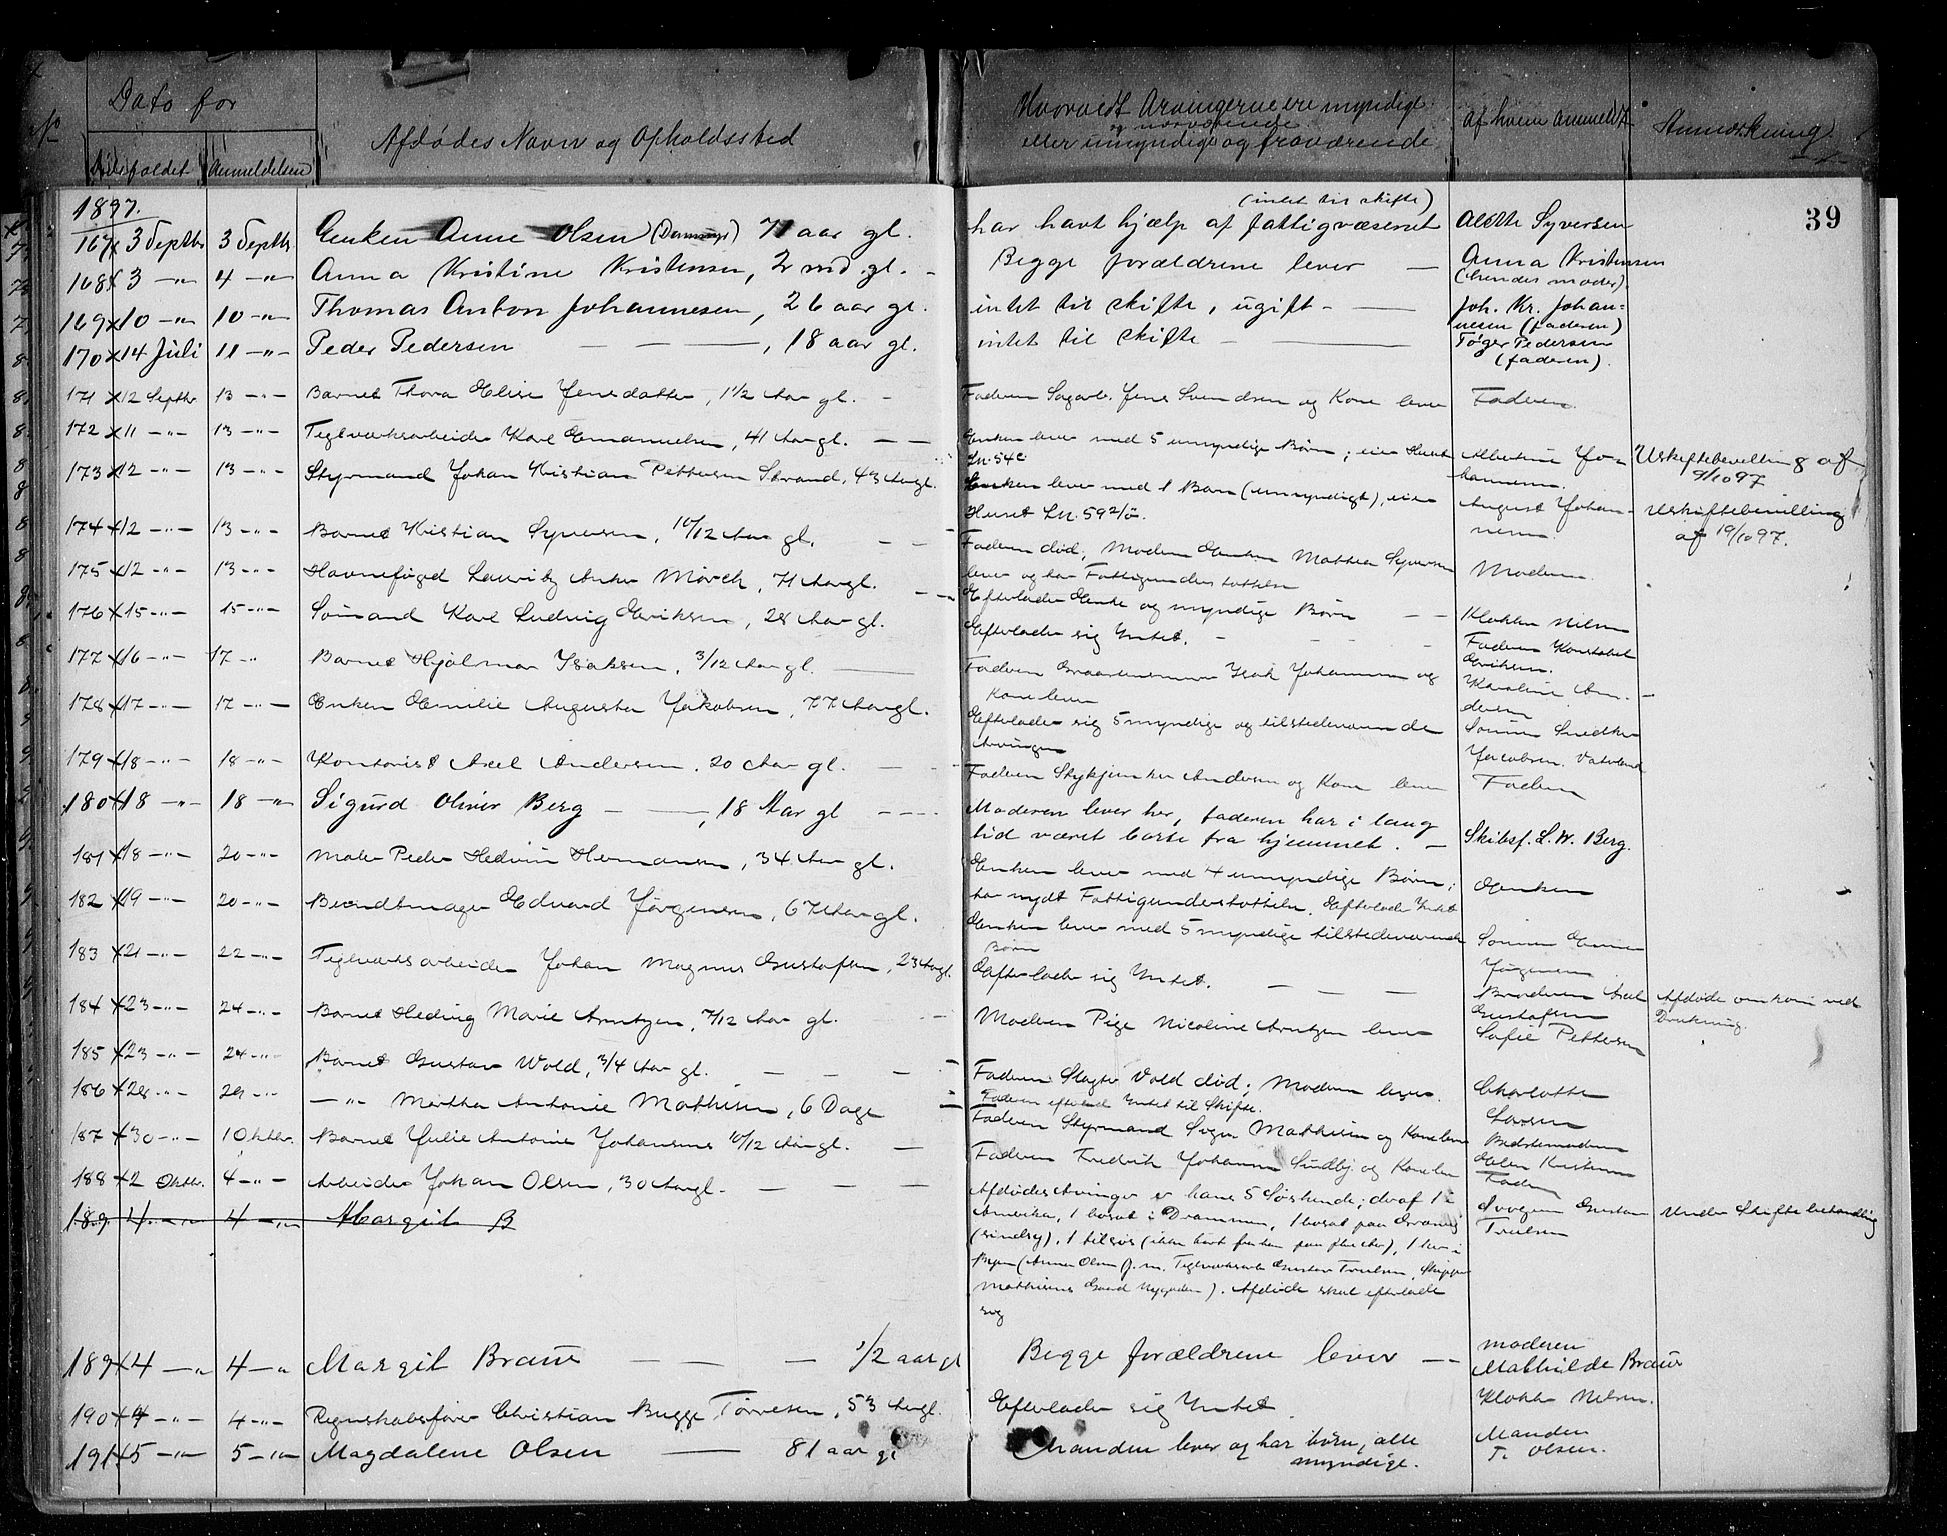 No
Dato for
Dødsfaldet Anmeldelsen
Afdødes Navn og Opholdssted
Hvorvidt Arvingerne ere myndige
og nærværende
eller umyndige og fraværende
Af hvem anmeldt
Anmærkning
39
1897.
167 x 3 Septbr. 3 Septbr. Enken Anne Olsen 71 aar gl. (intet til skifte) har havt hjælp af fattigvæsenet Alette Syversen
168 x 3 -"- 4 -"- Anna Kristine Kristensen, 2 md. gl. - Begge forældrene lever — Anna Kristensen
(hendes moder).
169 x 10 -"- 10 -"- Thomas Anton Johannesen, 26 aar gl. intet til skifte, ugift - — Joh. Kr. Johan-
nesen (faderen)
170 x 14 Juli 11 -"- Peder Pedersen — — —, 18 aar gl. intet til skifte — Tøger Pedersen
(faderen).
171 x 12 Septbr 13 -"- Barnet Thora Elise Jensdatter, 1 1/2 Aar gl. - Faderen Sagarb. Jens Svendsen og Kone lever Faderen.
172 x 11 -"- 13 -"- Teglværksarbeider Karl Emanuelsen, 41 Aar gl. — — Enken lever med 5 umyndige Børn; eier Huset
Ln. 54c Albertine Jo-
hannesen. Uskiftebevilling af
9/10 97
173 x 12 -"- 13 -"- Styrmand Johan Kristian Pettersen Strand, 43 Aar gl. Enken lever med 1 Barn (umyndigt), eier
Huset Ln. 592/ö. August Johan-
nesen. Uskiftebevilling
af 19/10 97.
174 x 12 -"- 13 -"- Barnet Kristian Syversen, 10/12 Aar gl. — — Faderen død, Moderen Enken Mathea Syversen
lever og har Fattigunderstøttelse Moderen
175 x 12 -"- 13 -"- Havnefoged Lauritz Anker Mørch, 71 Aar gl. — — Efterlader Enke og myndige Børn — — Klokker Nilsen
176 x 15 -"- 15 -"- Sømand Karl Ludvig Eriksen, 28 Aar gl. Efterlader sig Intet. - Faderen Konstabel
Eriksen.
177 x 16 -"- 17 -"- Barnet Hjalmar Isaksen, 3/12 Aar gl. — Faderen Isak Johannesen og
Kone lever Karoline An-
dersen
178 x 17 -"- 17 -"- Enken Emilie Augusta Jakobsen, 77 Aar gl. Efterlader sig 5 myndige og tilstedeværende
Arvinger Sønnen Snedker
Jacobsen
179 x 18 -"- 18 -"- Kontorist Axel Andersen, 20 Aar gl. — Faderen Stykjunker Andersen og Kone lever Faderen
180 x 18 -"- 18 -"- Sigurd Oliver Berg — —, 18 Aar gl — Moderen lever her, faderen har i lang
tid været borte fra hjemmet. — Skibsf. L. W. Berg.
181 x 18 -"- 20 -"- Maler Peder Hermansen, 34 Aar gl. Enken lever med 4 umyndige Børn;
har nydt Fattigunderstøttelse. Efterlader Intet Enken
182 x 19 -"- 20 -"- Bundtmager Edvard Jørgensen, 67 Aar gl. Enken lever med 5 myndige tilstedeværende
Børn Sønnen
Jørgensen
183 x 21 -"- 22 -"- Teglværksarbeider Johan Magnus Gustafsen, 23 Aar gl. Efterlader sig Intet. — — — Broderen Axel
Gustafsen Afdøde omkom ved
Drukning.
184 x 23 -"- 24 -"- Barnet Hedvig Marie Arntzen, 7/12 Aar gl. — Moderen Pige Nicoline Arntzen lever Sofie Pettersen
185 x 23 -"- 24 -"- Barnet Gustav Wold, 3/4 Aar gl. — — — Faderen Slagter Vold død; Moderen lever.
Faderen efterlod Intet til Skifte. Charlotte
Larsen
186 x 28 -"- 29 -"- -"- Martha Antonie Mathisen, 6 Dage Faderen Styrmand Mathisen og Kone lever Bedstemoderen
187 x 30 -"- 1 Oktbr. Barnet Julie Antonie Johansen 10/12 Aar gl. — Faderen Fredrik Johansen og Kone lever
Faderen
188 x 2 Oktbr. 4 -"- Arbeider Johan Olsen, 30 Aar gl. — — — Afdødes Arvinger er hans 5 Søskende; deraf 1 i
Amerika, 1 bosat i Drammen, 1 bosat paa
(sindsyg), 1 tilsøs (ikke hørt fra ham paa flere Aar), 1 her i
Byen (Anna Olsen g. m. Teglværksarb Gustav Truelsen, Skipper
Mathisens Gaard Nygaden). Afdøde skal efterlade
sig Svogeren Gustav
Truelsen Under Skiftebehandling
189. 4 -"- 4 -"- Margit B
189 x 4 -"- 4 -"- Margit Braue — — — 1/2 aar gl Begge forældrene lever — moderen
Mathilde Braue
190 x 4 -"- 4 -"- Regnskabsfører Christian Bugge Tørresen, 53 Aar gl. Efterlader sig Intet Klokker Nilsen.
191 x 5 -"- 5 -"- Magdalene Olsen — 81 aar gl Manden lever og har børn, alle
myndige. Manden
T. Olsen.